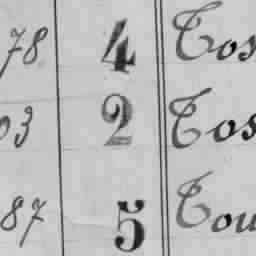 78 4 Tos
03 2 Tos
87 5 Tou